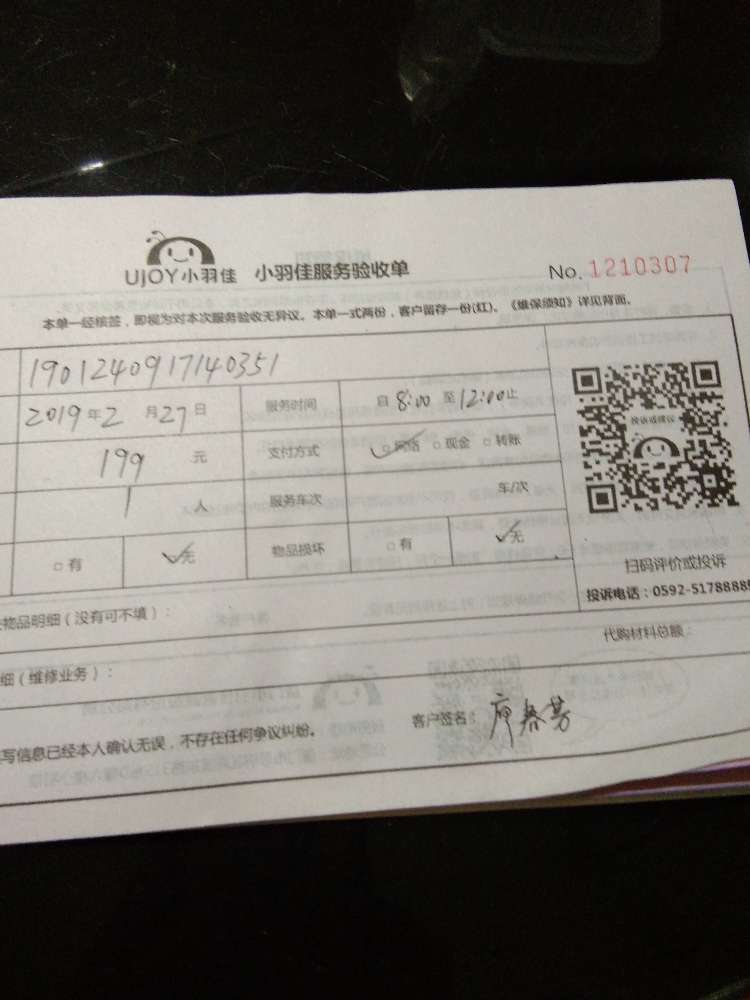 UJOY小羽佳 小羽佳服务验收单 No. 1210307
本单一经核签，即视为对本次服务验收无异议。本单一式两份，客户留存一份(红)。《维保须知》详见背面。
1901240917140351
2019年2月27日 服务时间 自8:00至12:00止
199元 支付方式 ✓□网络 □现金 □转账
投诉或建议
1人 服务车次 车/次
□有 ✓无 物品损坏 □有 ✓无
扫码评价或投诉
投诉电话：0592-5178888
物品明细（没有可不填）：
代购材料总额：
细（维修业务）：
写信息已经本人确认无误，不存在任何争议纠纷。 客户签名：廖春芳